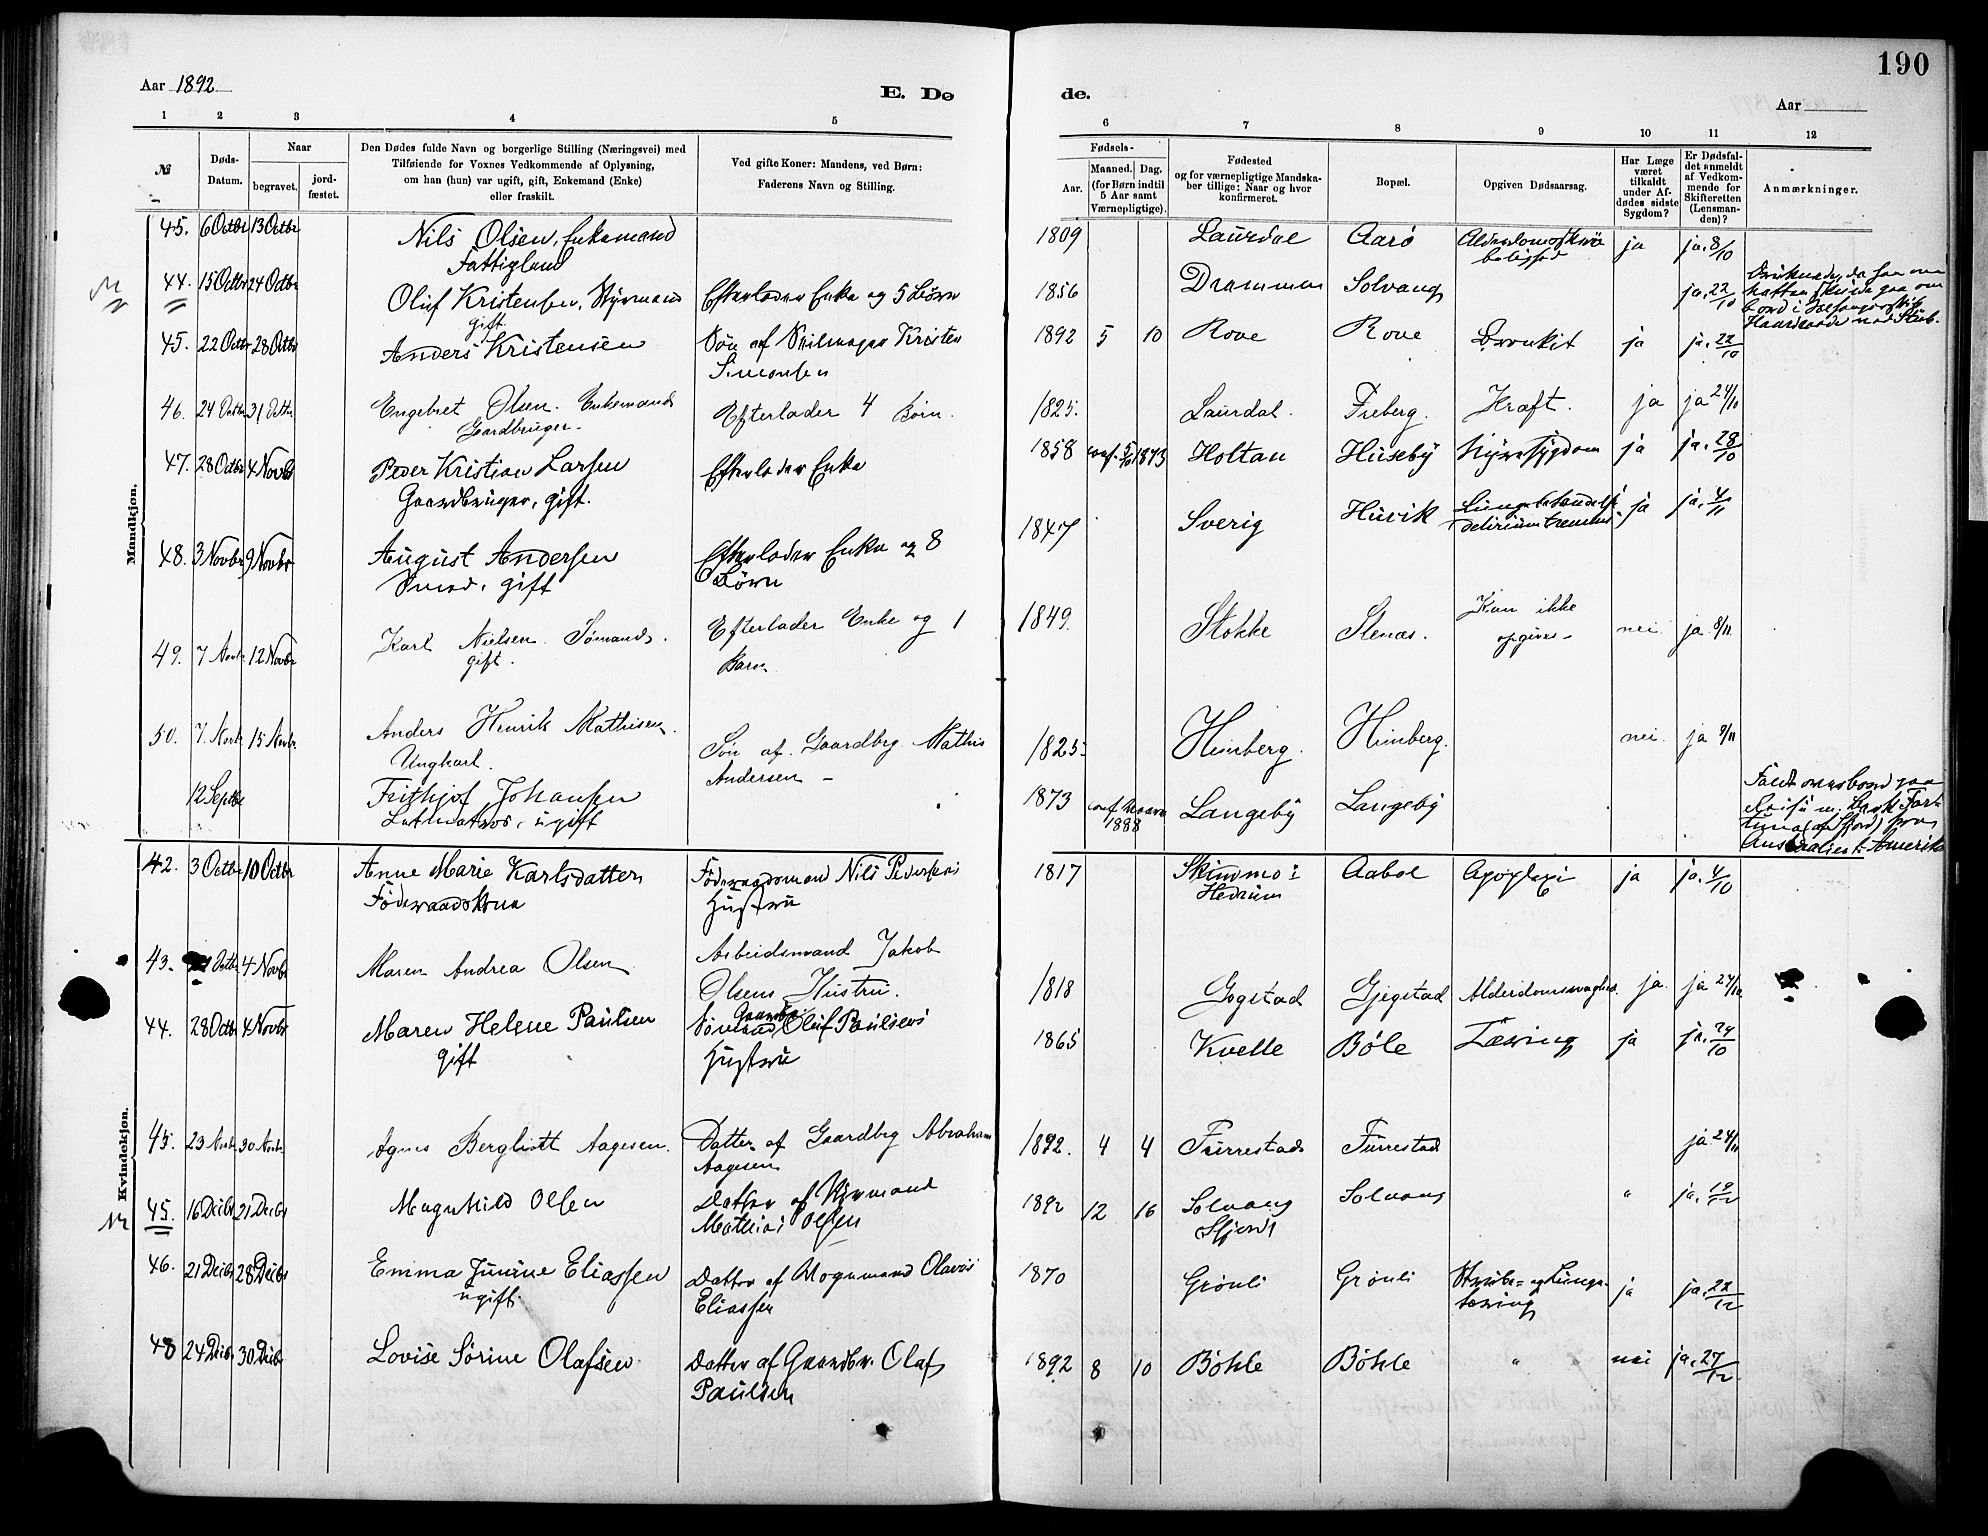 190
Aar 1892
E. Dø
de.
Aar
1 2 3 4 5
6 7 8 9 10 11 12
№
Døds-
Datum.
Naar
begravet.
jord-
fæstet.
Den Dødes fulde Navn og borgerlige Stilling (Næringsvei) med
Tilføiende for Voxnes Vedkommende af Oplysning,
om han (hun) var ugift, gift, Enkemand (Enke)
eller fraskilt.
Ved gifte Koner: Mandens, ved Børn:
Faderens Navn og Stilling.
Fødsels-
Aar.
Maaned. Dag.
(for Børn indtil
5 Aar samt
Værnepligtige).
Fødested
og for værnepligtige Mandska-
ber tillige: Naar og hvor
konfirmeret.
Bopæl.
Opgiven Dødsaarsag.
Har Læge
været
tilkaldt
under Af-
dødes sidste
Sygdom?
Er Dødsfal-
det anmeldt
af Vedkom-
mende for
Skifteretten
(Lensman-
den)?
Anmærkninger.
Mandkjøn.
45. 6 Octbr 13 Octbr Nils Olsen, Enkemand 1809 Laurdal Aarø ja ja. 8/10
Fattiglem
44. 15 Octbr 24 Octbr Oluf Kristensen, Styrmand Efterlader Enke og 5 Børn 1856 Drammen Solvang ja. 22/10
gift
45. 22 Octbr 28 Octbr Anders Kristensen Søn af Skilmager Kristen 1892 5 10 Rove Rove Bronkit ja ja. 22/10
Simonsen
46. 24 Octbr 31 Octbr Engebret Olsen. Enkemand Efterlader 4 Børn. 1825. Laurdal. Freberg. Kræft. ja ja 24/10
Gaardbruger.
47. 28 Octbr 4 Novbr Peder Kristian Larsen Efterlader Enke 1858 conf. 5/10 1873 Holtan Huseby Nyresygdom ja ja. 28/10
Gaardbruger, gift.
48. 3 Novbr 9 Novbr August Andersen Efterlader Enke og 8 1847 Sverig Huvik ja ja. 4/11
Smed, gift Børn
delirium tremens
49. 7 Novbr 12 Novbr Karl Nielsen Sømand. Efterlader Enke og 1 1849. Stokke Stenas. Kan ikke nei ja 8/11
gift. Barn opgives
50. 7 Novbr 15 Novbr Anders Henrik Mathisen. Søn af Gaardbrg Mathis 1825. Himberg. Himberg. nei. ja 9/11
Ungkarl. Andersen
12 Septbr Frithjof Johansen 1873 conf. 1888 Langeby Langeby
Letmatros, ugift
Kvindekjøn.
42. 3 Octbr 10 Octbr Anne Marie Karlsdatter Føderaadsmand Nils Pedersens 1817 Skimmo i Aabol Apoplexi ja ja. 4/10
Føderaadskone Hustru Hedrum
43. Octbr 4 Novbr Maren Andrea Olsen Arbeidsmand Jakob 1818 Gogstad Gjegstad Alderdomssvaghed ja ja 24/10
Olsens Hustru.
44. 28 Octbr 4 Novbr Maren Helene Paulsen Oluf Paulsens 1865 Kvelle Bøle Tæring ja ja. 29/10
gift Hustru
45. 23 Novbr 30 Novbr Agnes Bergliott Aagesen. Datter af Gaardbrg Abraham 1892. 4 4 Furrestad Furrestad ja 24/11
Aagesen
45. 16 Decbr 21 Decbr Magnhild Olsen Datter af Styrmand 1892 12 16 Solvang Solvang " ja. 19/12
Mathias Olsen
46. 21 Decbr 28 Decbr Emma Junine Eliassen Datter af Vognmand Olavus 1870 Grønli Grønli Strube- og Lunge- ja ja. 22/12
ugift. Eliassen tæring
48 24 Decbr 30 Decbr Lovise Sørine Olafsen Datter af Gaardbr. Olaf 1892 8 10 Bøhle Bøhle " nei ja. 27/12
Paulsen